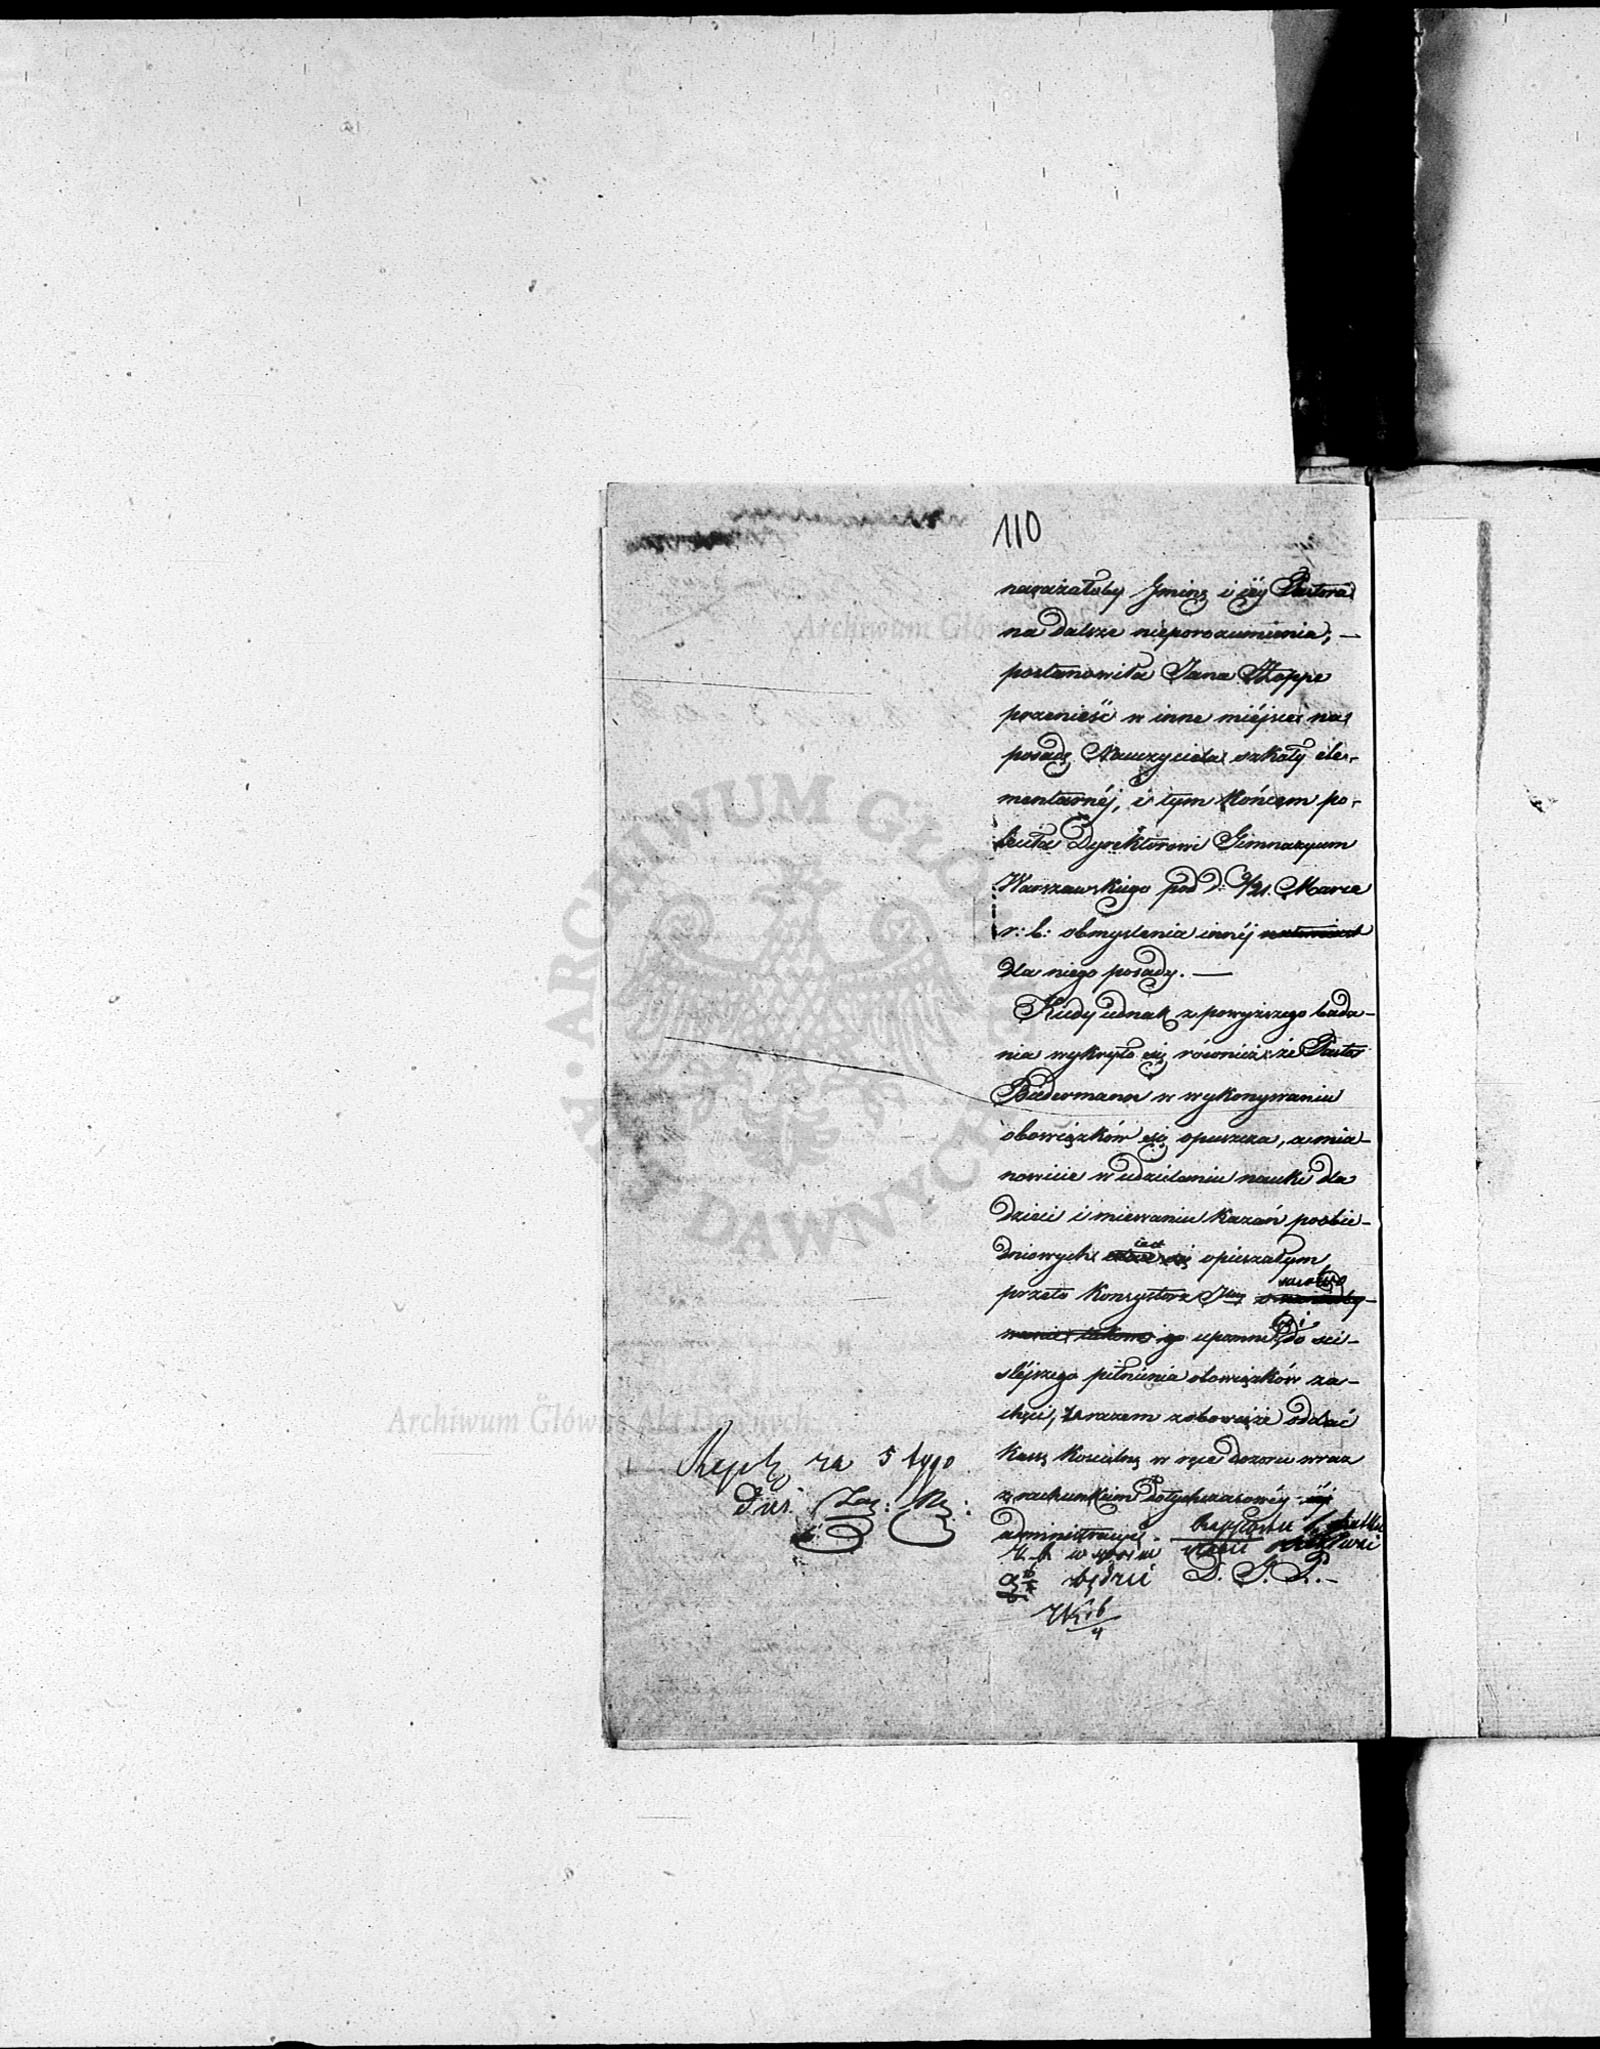 110
narażałoby Gminę i jéj Pastora
na dalsze nieporozumienia, —
postanowiła Jana Hoppe
przenieść w inne miéjsce na
posadę Nauczyciela szkoły ele-
mentarnéj, i tym końcem po-
leciła Dyrektorowi Gimnazyum
Warszawskiego pod d. 9/21. Marca
r: b: obmyslenia innéj natomiast
dla niego posady. —
Kiedy jednak z powyższego bada-
nia wykryło się również że Pastor
Biedermann w wykonywaniu
obowiązków się opuszcza, a mia-
nowicie w udzielaniu nauki dla
dzieci i miewaniu kazań pośbie-
dniowych jest opieszałym
przeto Konsystorz
go upomni, i do ści-
ślejszego pełnienia obowiązków za-
chęci, zarazem zobowiąże oddać
kassę kościelną w ręce dozoru wraz
z rachunkiem dotychczasowéj jéj
administracyi.
będzie D. G. P. —
Rept za 5 tygo
dni.
Archiwum Główne Akt Dawnych
ARCHIWUM GŁÓWNE AKT DAWNYCH